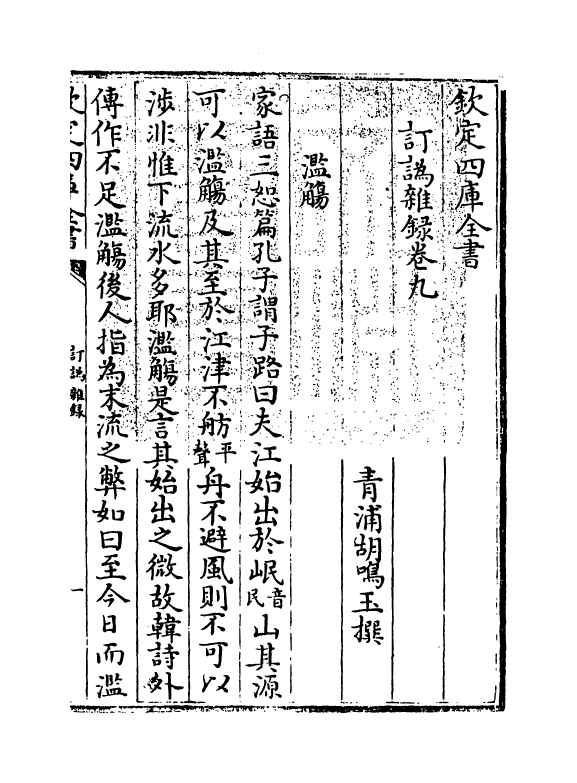 欽定四庫全書
訂譌雜録卷九
青浦胡鳴玉撰
濫觴
家語三恕篇孔子謂子路曰夫江始出於岷音民山其源
可以濫觴及其至於江津不舫平聲舟不避風則不可以
涉非惟下流水多耶濫觴是言其始出之微故韓詩外
傳作不足濫觴後人指為末流之弊如曰至今日而濫
欽定四庫全書
訂譌雜録
一